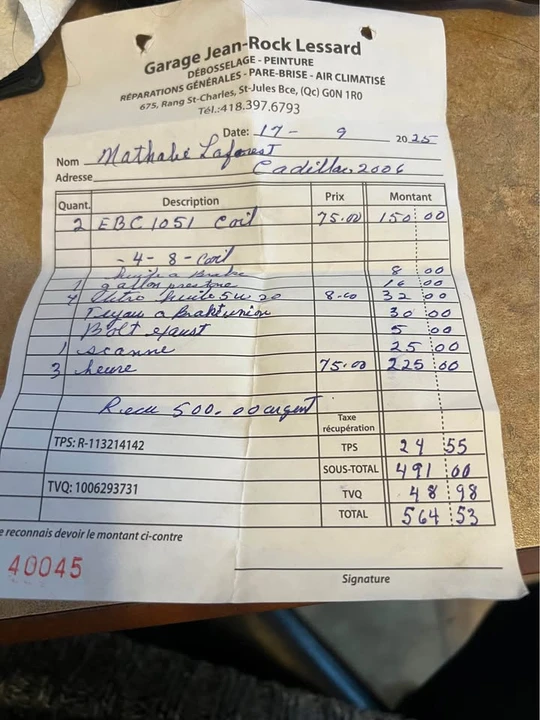 Garage Jean-Rock Lessard
DÉBOSSELAGE - PEINTURE
RÉPARATIONS GÉNÉRALES - PARE-BRISE - AIR CLIMATISÉ
675, Rang St-Charles, St-Jules Bce, (Qc) G0N 1R0
Tél.:418.397.6793
Date: 17 - 9 2025
Nom Mathalie Laforest
Adresse Cadillac 2006
Quant. Description Prix Montant
2 EBC 1051 Coil 75.00 150 00
- 4 - 8 - Coil
huile a Brake 8 00
1 gallon prestone 16 00
4 litre huile 5w20 8.00 32 00
Tuyau a Brake union 30 00
Bolt exaust 5 00
1 scanne 25 00
3 heure 75.00 225 00
Recu 500.00 argent
Taxe
récupération
TPS: R-113214142 TPS 24 55
SOUS-TOTAL 491 00
TVQ: 1006293731 TVQ 48 98
TOTAL 564 53
e reconnais devoir le montant ci-contre
40045
Signature